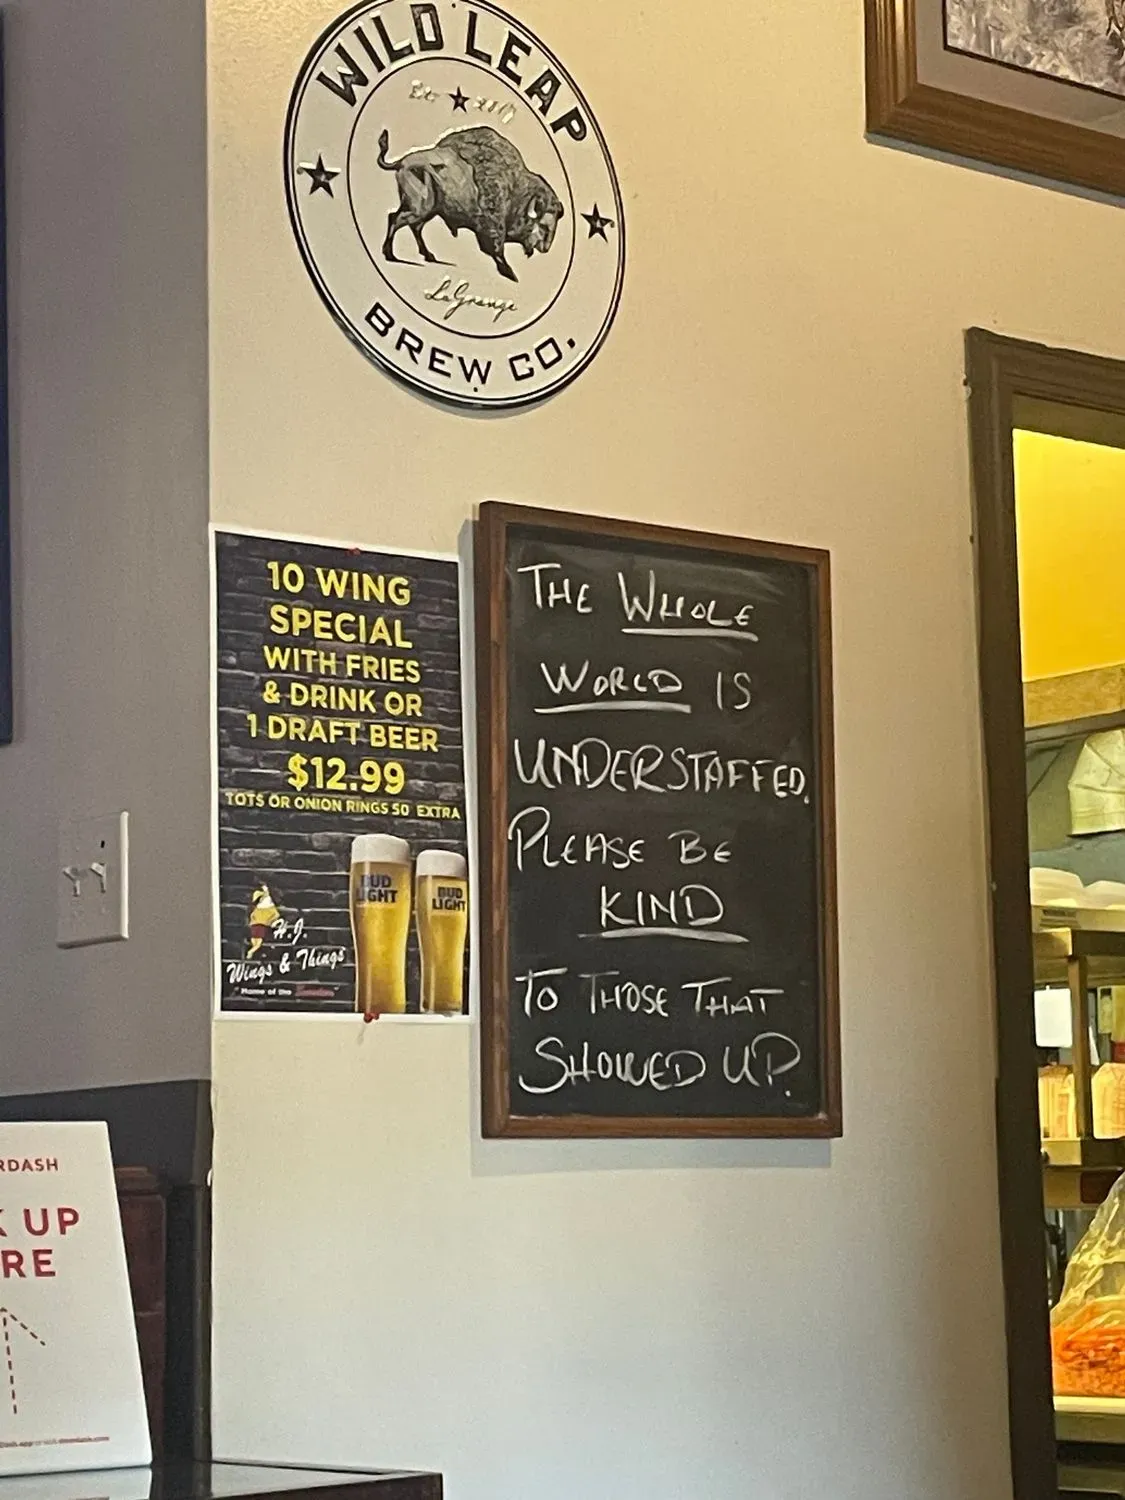 WILD LEAP
Est 2017
LaGrange
BREW CO.
10 WING
SPECIAL
WITH FRIES
& DRINK OR
1 DRAFT BEER
$12.99
TOTS OR ONION RINGS 50 EXTRA
BUD
LIGHT
BUD
LIGHT
H.J.
Wings & Things
"Home of the
THE WHOLE
WORLD IS
UNDERSTAFFED.
PLEASE BE
KIND
TO THOSE THAT
SHOWED UP.
RDASH
K UP
RE